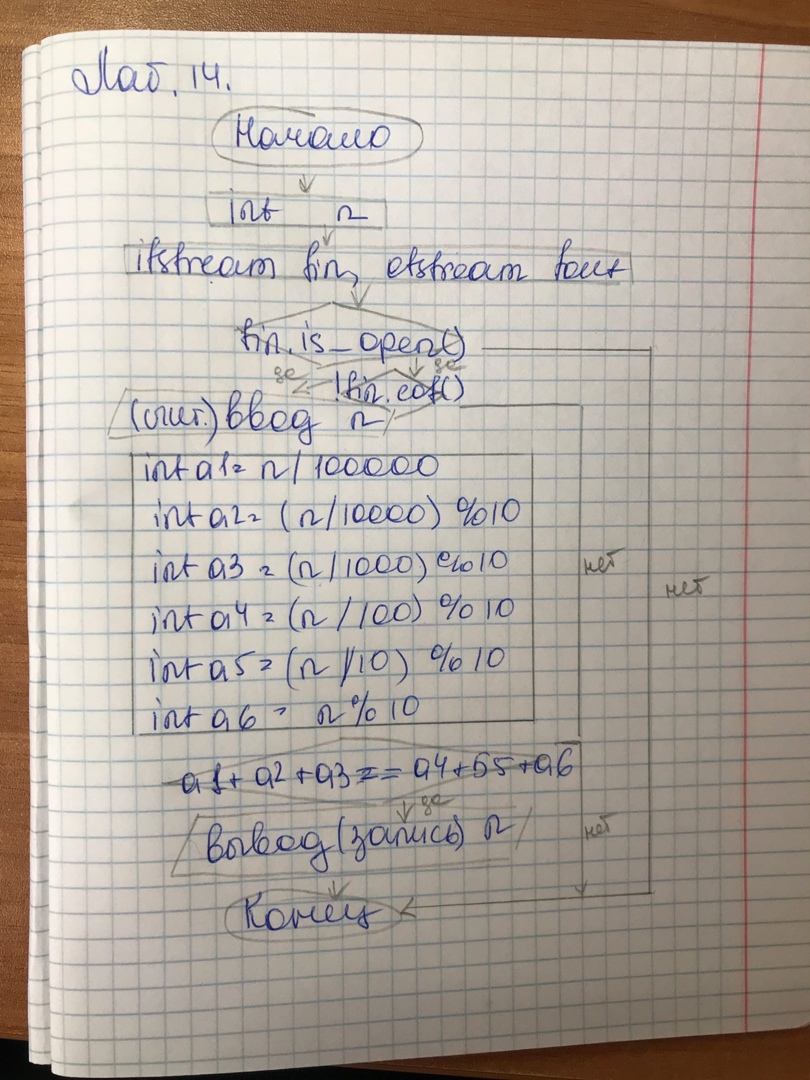 Лаб. 14.
Начало
int n
ifstream fin, ofstream fout
fin.is_open()
да да
!fin.eof()
(счит.) ввод n
int a1 = n/100000
int a2 = (n/10000) %10
int a3 = (n/1000) %10
нет
нет
int a4 = (n/100) %10
int a5 = (n/10) %10
int a6 = n%10
a1+a2+a3==a4+б5+a6
да
вывод(запись) n
нет
Конец